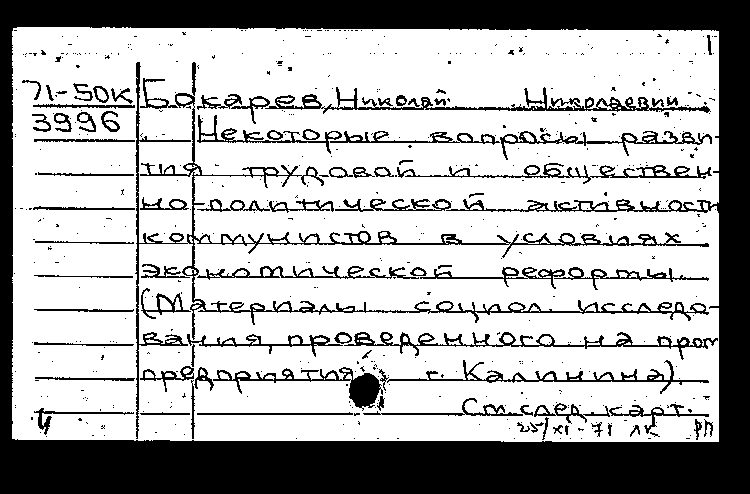 1
71-50К Бокарев, Николай Николаевич.
3996 Некоторые вопросы разви-
тия трудовой и обществен-
но-политической активности
коммунистов в условиях
экономической реформы.
(Материалы социол. исследо-
вания, проведенного на пром
предприятия г. Калинина).
См. след. карт.
25/XI-71 ЛК РП